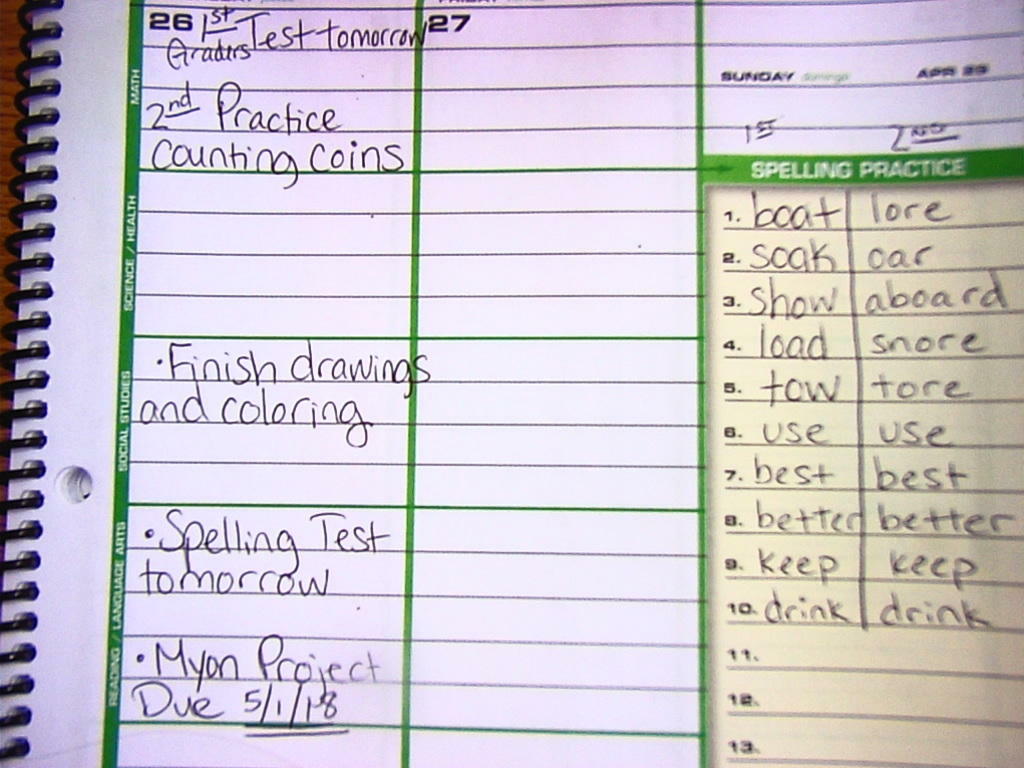 26 1st Test tomorrow
Graders
2nd Practice
counting coins
MATH
SCIENCE / HEALTH
• Finish drawings
and coloring
SOCIAL STUDIES
• Spelling Test
tomorrow
• Myon Project
Due 5/1/18
READING / LANGUAGE ARTS
27
SUNDAY domingo APR 29
1ST 2ND
SPELLING PRACTICE
1. boat lore
2. soak oar
3. show aboard
4. load snore
5. tow tore
6. use use
7. best best
8. better better
9. keep keep
10. drink drink
11.
12.
13.